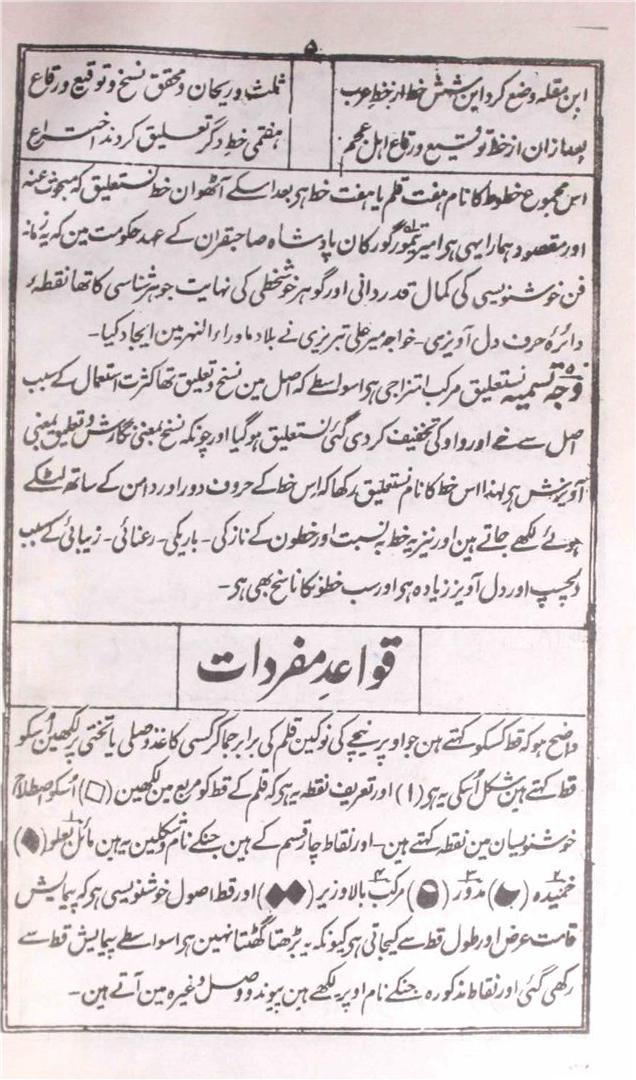 ۵
ابن مقلہ وضع کرد این شش خط از خط عرب
ثلث و ریحان و محقق نسخ و توقیع و رقاع
بعد ازان از خط توقیع و رقاع اہل عجم
ہفتمی خط دگر تعلیق کردند اختراع
اس مجموع خطوط کا نام ہفت قلم یا ہفت خط ہی بعد اسکے آٹھوان خط نستعلیق کہ مبحوث عنہ
اور مقصود ہمارا یہی ہر امیر تیمور گورکان بادشاہ صاحبقران کے عہد حکومت مین کہ یہ زمانہ
فن خوشنویسی کی کمال قدردانی اور گوہر خوشخطی کی نہایت جوہر شناسی کا تھا نقطۂ
دائرۂ حرف دل آویزی ۔ خواجہ میر علی تبریزی نے بلاد ماوراء النہر مین ایجاد کیا ۔
وجہ تسمیہ نستعلیق مرکب امتزاجی ہی اسواسطے کہ اصل مین نسخ و تعلیق تھا کثرت استعمال کے سبب
اصل سے خے اور واو کی تخفیف کر دی گئی نستعلیق ہو گیا اور چونکہ نسخ بمعنی نگارش و تعلیق بمعنی
آویزش ہی لہذا اس خط کا نام نستعلیق رکھا کہ اس خط کے حروف دور اور دامن کے ساتھ لٹکے
ہوئے لکھے جاتے ہین اور نیز یہ خط بہ نسبت اور خطون کے نازکی ۔ باریکی ۔ رعنائی ۔ زیبائی کے سبب
دلچسپ اور دل آویز زیادہ ہی اور سب خطونکا ناسخ بھی ہی ۔
قواعدِ مفردات
واضح ہو کہ قط کسکو کہتے ہین جو اوپر نیچے کی نوکین قلم کی برابر جما کر کسی کاغذ وصلی یا تختی پر لکھین اُسکو
قط کہتے ہین شکل اُسکی یہ ہی (۱) اور تعریف نقطہ یہ ہی کہ قلم کے قط کو مربع مین لکھین (◇) اُسکو اصطلاح
خوشنویسان مین نقطہ کہتے ہین ۔ اور نقاط چار قسم کے ہین جنکے نام و شکلین یہ ہین مائل بعلو (◆)
خمیدہ () مدور () مرکب بالا و زیر (◆◆) اور قط اصول خوشنویسی ہی کہ پیمایش
قامت عرض اور طول قط سے کیجاتی ہی کیونکہ یہ بڑھتا گھٹتا نہین ہی اسواسطے پیمایش قط سے
رکھی گئی اور نقاط مذکورہ جنکے نام اوپر لکھے ہین پیوند و وصل وغیرہ مین آتے ہین ۔